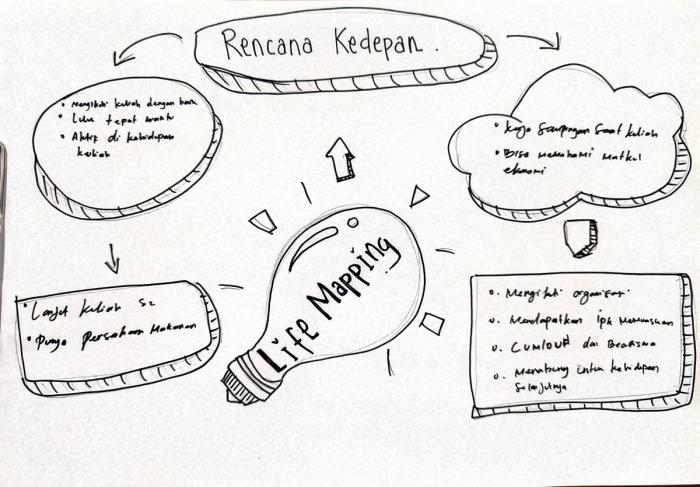 Rencana Kedepan.
• Mengikuti kuliah dengan baik
• Lulus tepat waktu
• Aktif di kehidupan
kuliah
• Kerja Sampingan Saat kuliah
• Bisa memahami matkul
ekonomi
Life Mapping
• Lanjut kuliah S2
• Punya Perusahaan Makanan
o. Mengikuti organisasi
o. Mendapatkan ipk memuaskan
o. CUMLOUR dan Beasiswa
o. Menabung untuk kehidupan
Selanjutnya